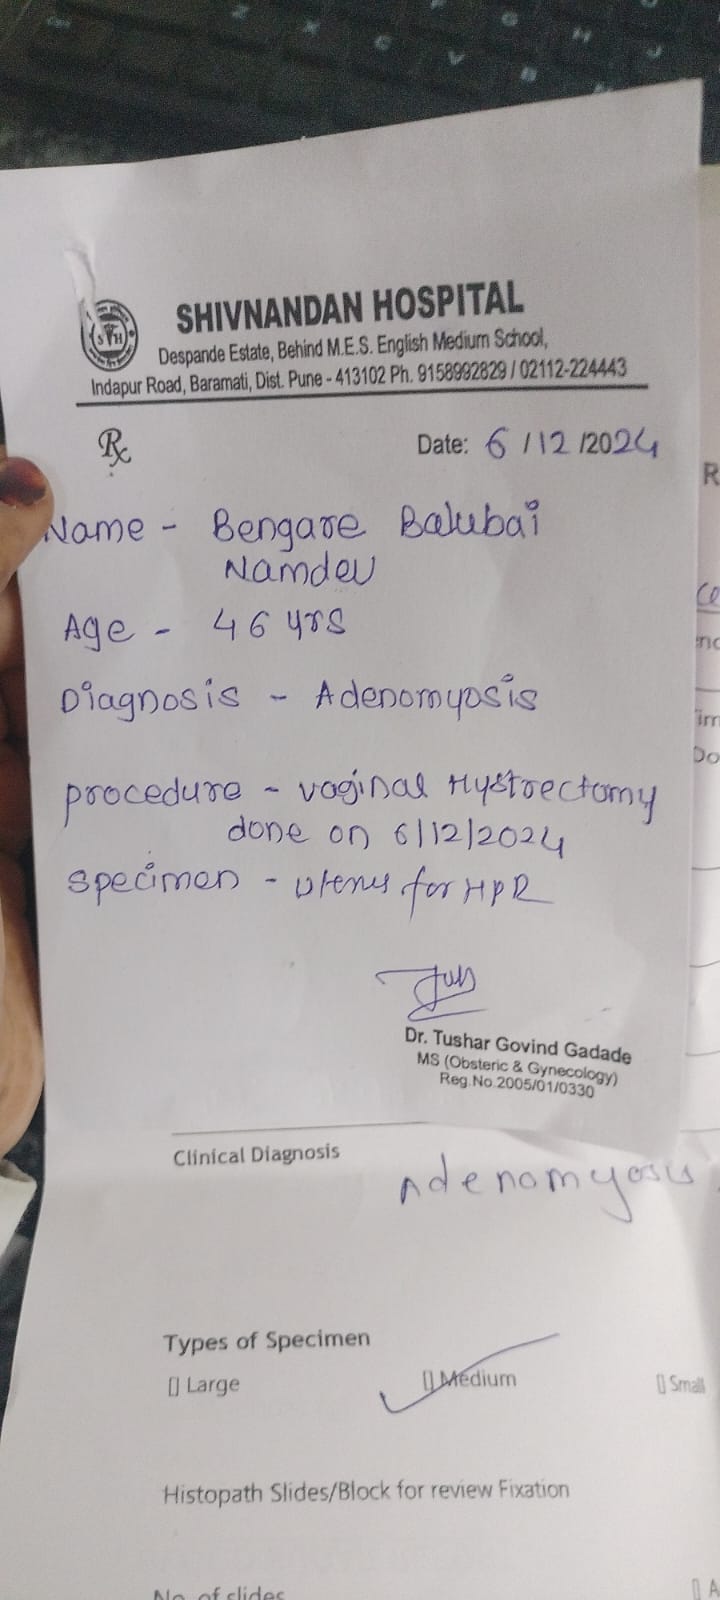 SHIVNANDAN HOSPITAL
Despande Estate, Behind M.E.S. English Medium School,
Indapur Road, Baramati, Dist. Pune - 413102 Ph. 9158992829 / 02112-224443
Rx
Date: 6/12/2024
Name - Bengare Balubai
Namdev
Age - 46 yrs
Diagnosis - Adenomyosis
procedure - vaginal Hystrectomy
done on 6/12/2024
specimen - uterus for HPR
Dr. Tushar Govind Gadade
MS (Obsteric & Gynecology)
Reg.No.2005/01/0330
Clinical Diagnosis Adenomyosis
Types of Specimen
[] Large [] Medium [] Small
Histopath Slides/Block for review Fixation
No. of slides